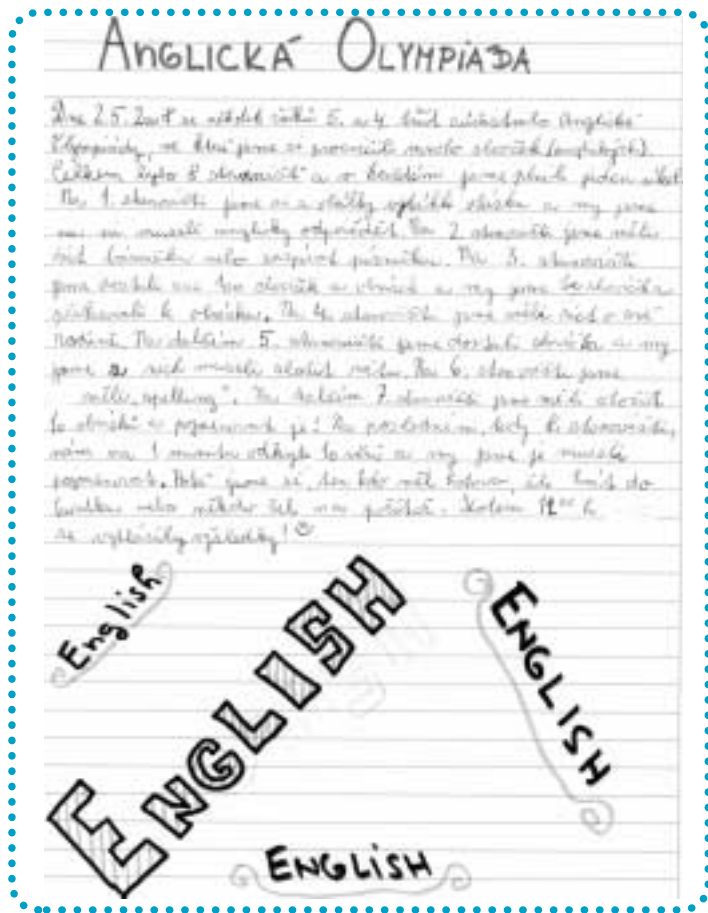 ANGLICKÁ OLYMPIÁDA
Dne 2.5. se několik žáků 5. a 4. tříd zúčastnilo Anglické
Olympiády, ve které jsme si procvičili mnoho slovíček (anglických).
Celkem bylo 8 stanovišť a v každém jsme plnili jeden úkol.
Na 1. stanovišti jsme si a otázky a my jsme
museli anglicky odpovědět. Na 2 stanovišti jsme měli
říct básničku nebo zazpívat písničku. Na 3. stanovišti
jsme dostali slovíček a obrázek a my jsme slovíčka
k obrázku. Na 4. stanovišti jsme měli říct o své
rodině. Na dalším 5. stanovišti jsme dostali slovíčka a my
jsme z nich museli složit větu. Na 6. stanovišti jsme
měli „spelling“. Na dalším 7 stanovišti jsme měli složit
obrázků a pojmenovat je! Na posledním, tedy 8. stanovišti,
nám na 1 minutu odkryli věcí a my jsme je museli
pojmenovat. Poté jsme si, ten kdo měl hotovo, šli hrát do
nebo někdo šel na počítač. Kolem h
se vyhlásily výsledky! ☺
English
ENGLISH
ENGLISH
ENGLISH